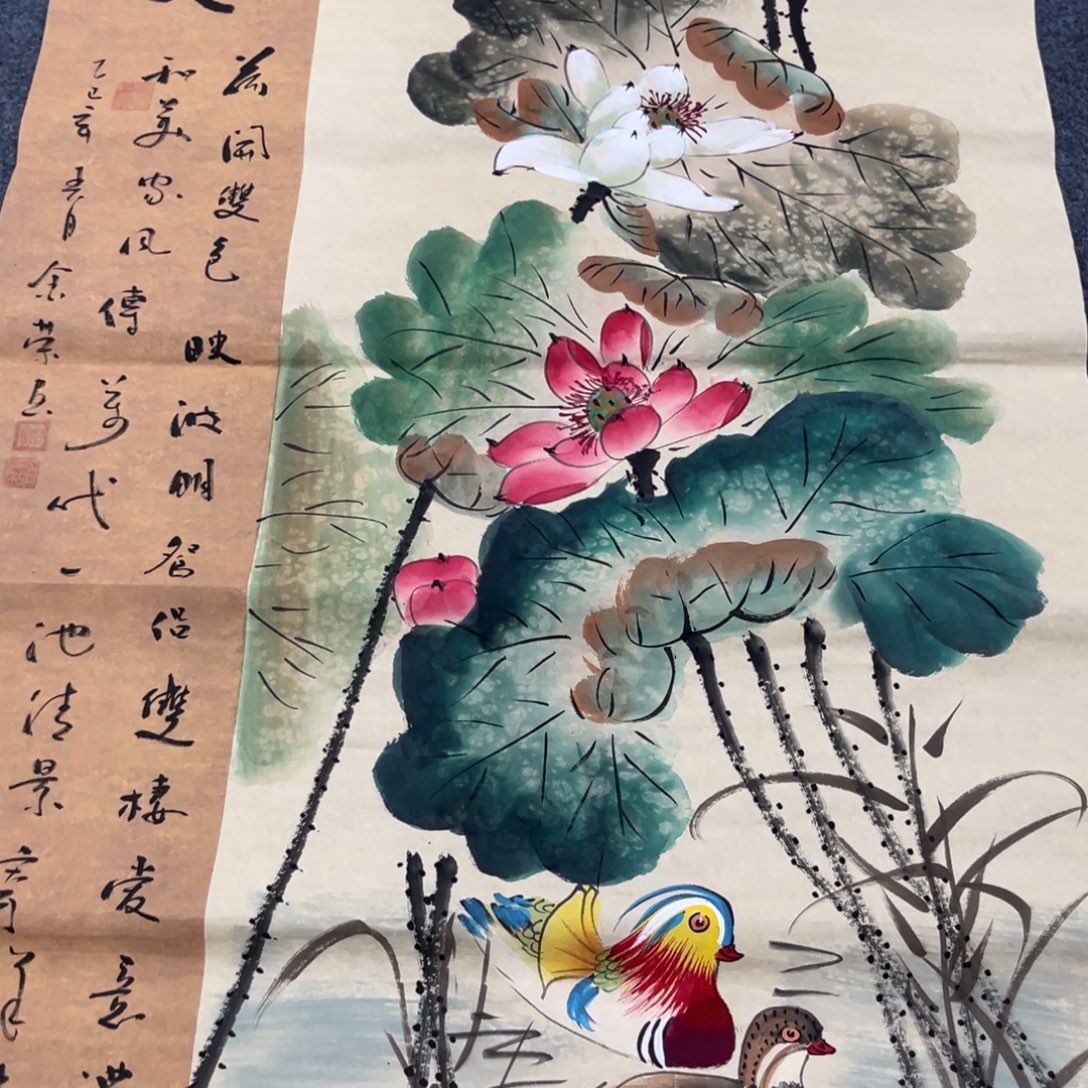 開雙色映波明鴛侶雙棲愛意
和美家風傳萬代一池清景
乙巳年夏月余榮